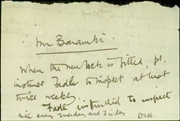 Mr Baranski.
When the new lock is fitted, pl.
instruct Fadle to inspect at least
twice weekly.
Fadle instructed to inspect
every Tuesday and Friday